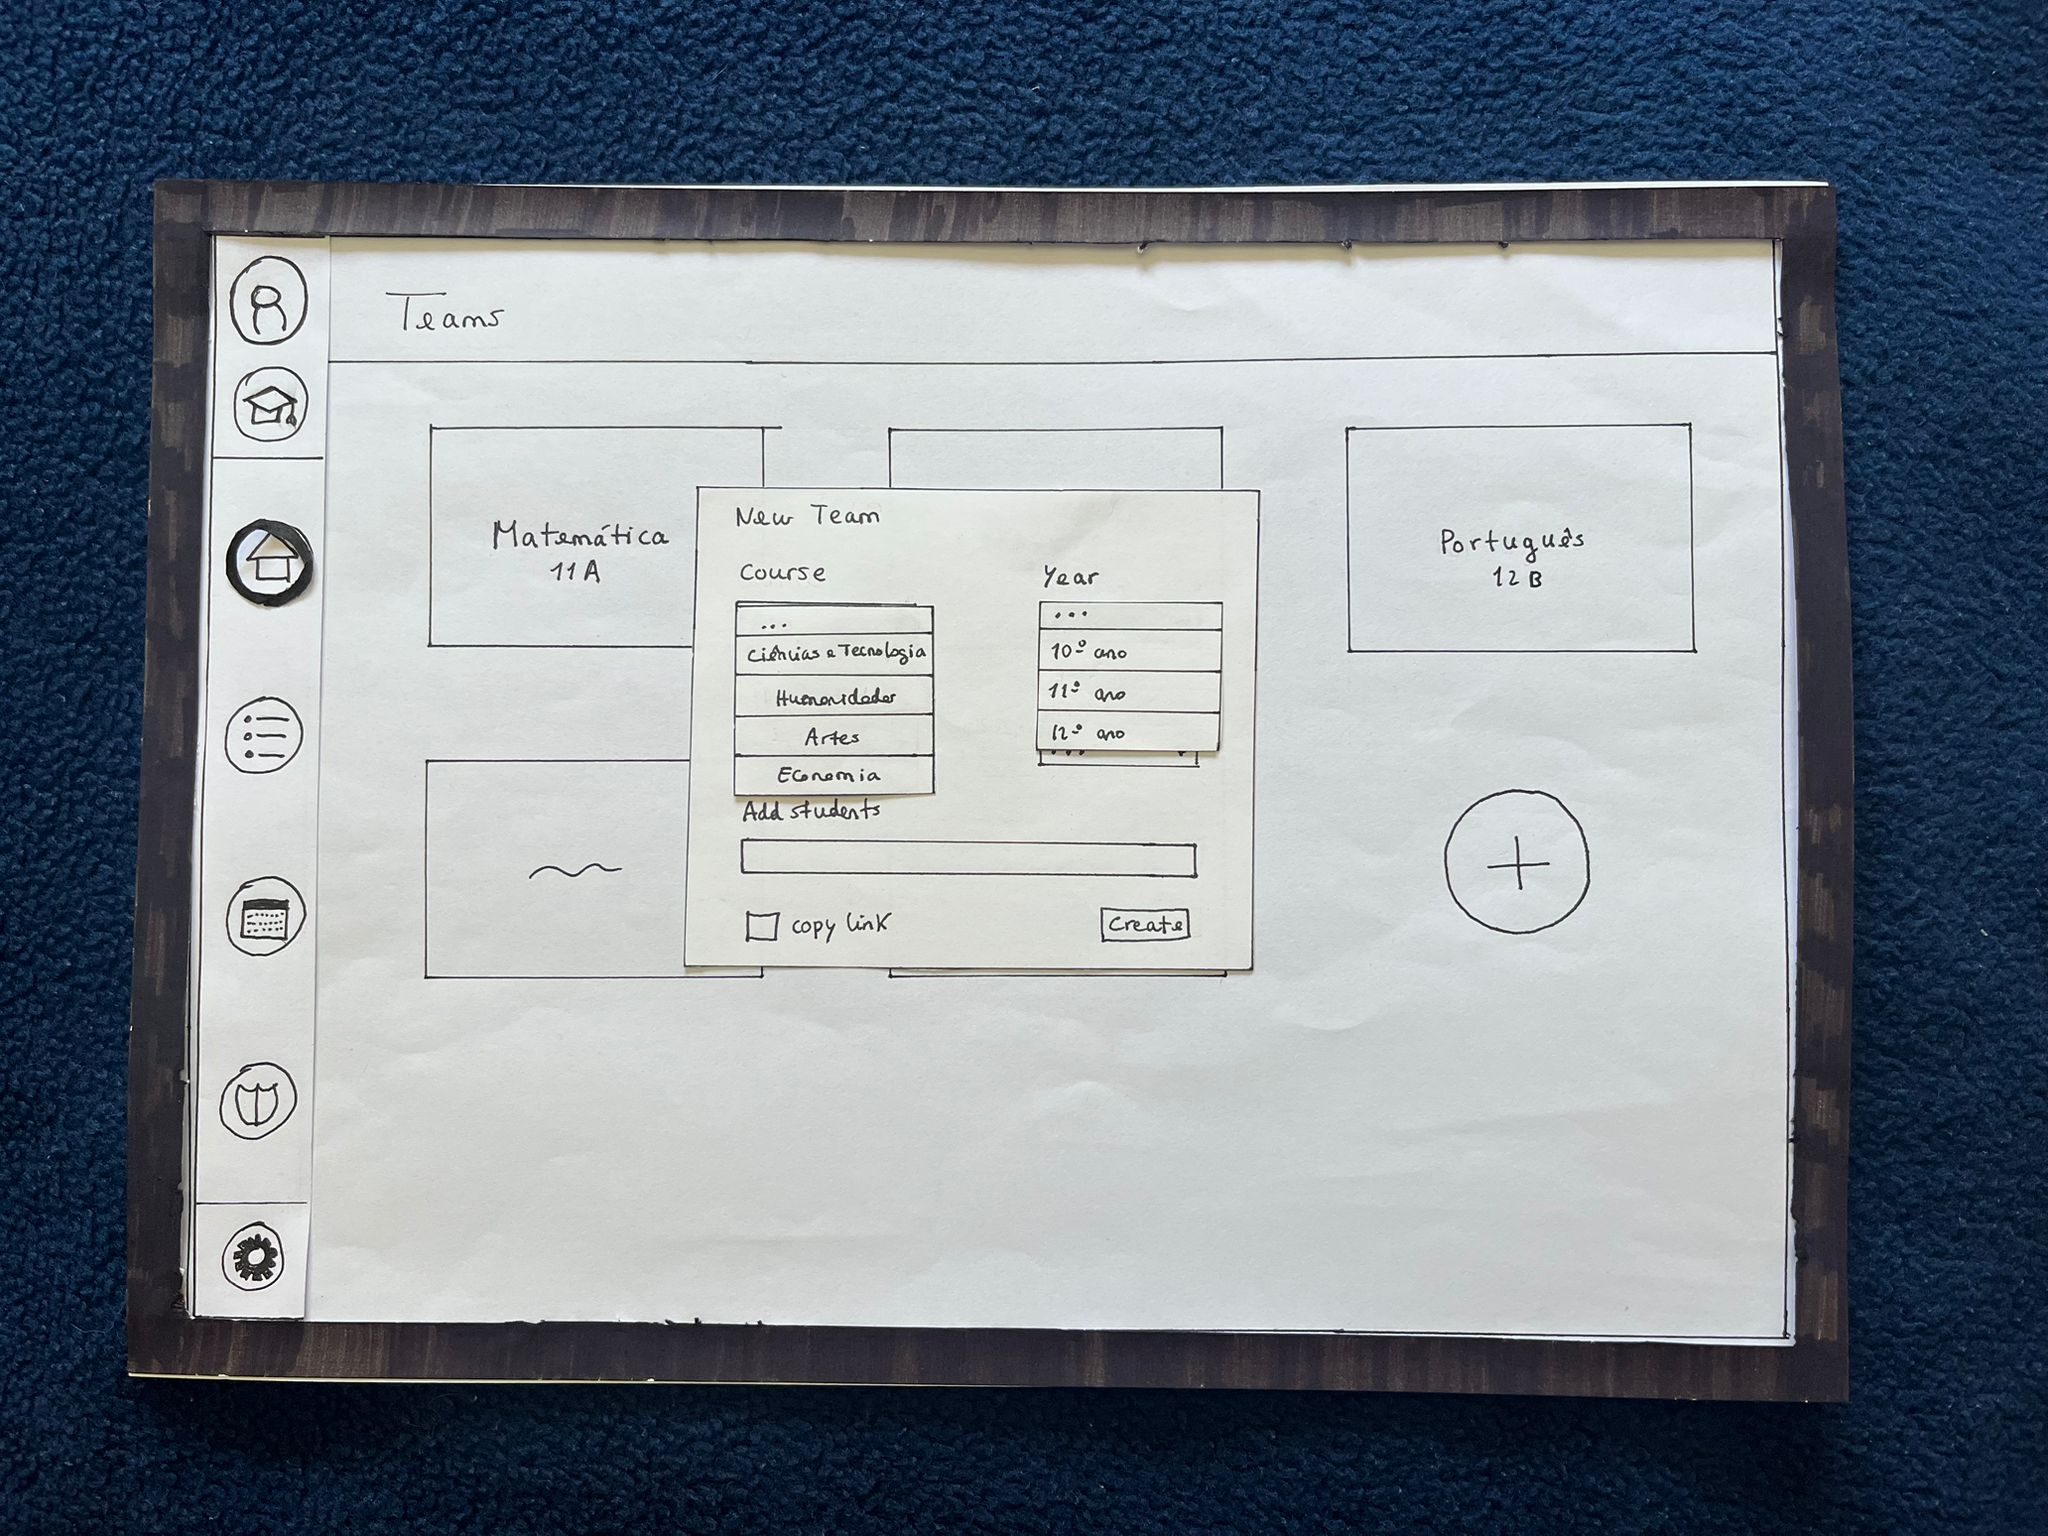 Teams
Matemática
11A
Português
12B
New Team
Course
...
Ciências e Tecnologia
Humanidades
Artes
Economia
Year
...
10º ano
11º ano
12º ano
Add students
copy link
Create